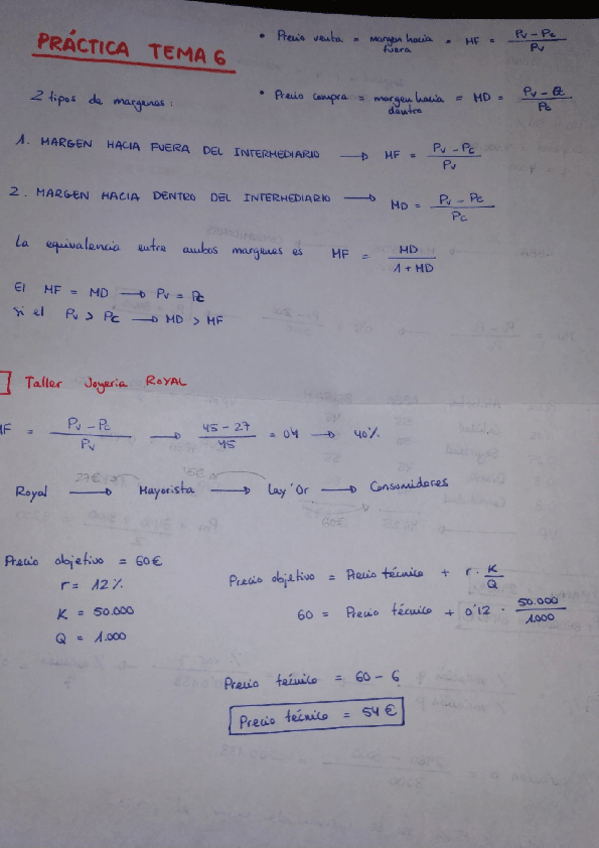 PRÁCTICA TEMA 6
• Precio venta = margen hacia fuera = MF = (Pv - Pc) / Pv
2 tipos de margenes:
• Precio compra = margen hacia dentro = MD = (Pv - Pc) / Pc
1. MARGEN HACIA FUERA DEL INTERMEDIARIO → MF = (Pv - Pc) / Pv
2. MARGEN HACIA DENTRO DEL INTERMEDIARIO → MD = (Pv - Pc) / Pc
La equivalencia entre ambos margenes es MF = MD / (1 + MD)
El MF = MD → Pv = Pc
Si el Pv > Pc → MD > MF
Taller Joyeria ROYAL
MF = (Pv - Pc) / Pv → (45 - 27) / 45 = 0'4 → 40%
27€ 45€
Royal → Mayorista → Lay'Or → Consumidores
60€
Precio objetivo = 60€
r = 12%
K = 50.000
Q = 1.000
Precio objetivo = Precio técnico + r · K/Q
60 = Precio técnico + 0'12 · 50.000/1.000
Precio técnico = 60 - 6
Precio técnico = 54€